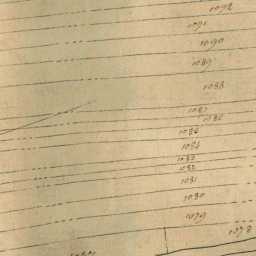 1078
1079
1080
1081
1082
1083
1084
1085
1086
1087
1088
1089
1090
1091
1092